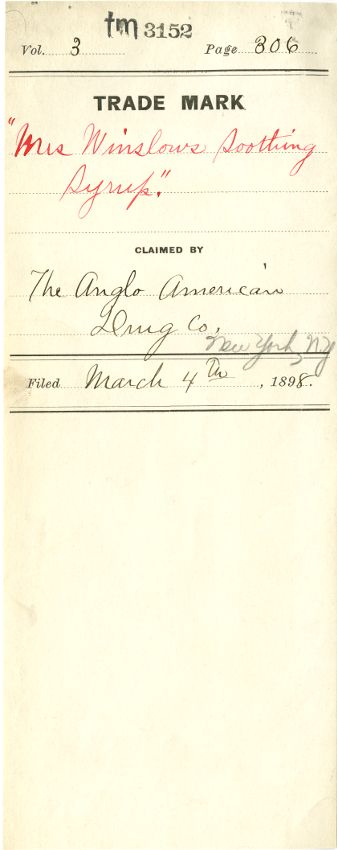 tm 3152
Vol. 3 Page 306
TRADE MARK
"Mrs Winslows Soothing
Syrup."
CLAIMED BY
The Anglo American
Drug Co.
New York, NY
Filed March 4th, 1898.